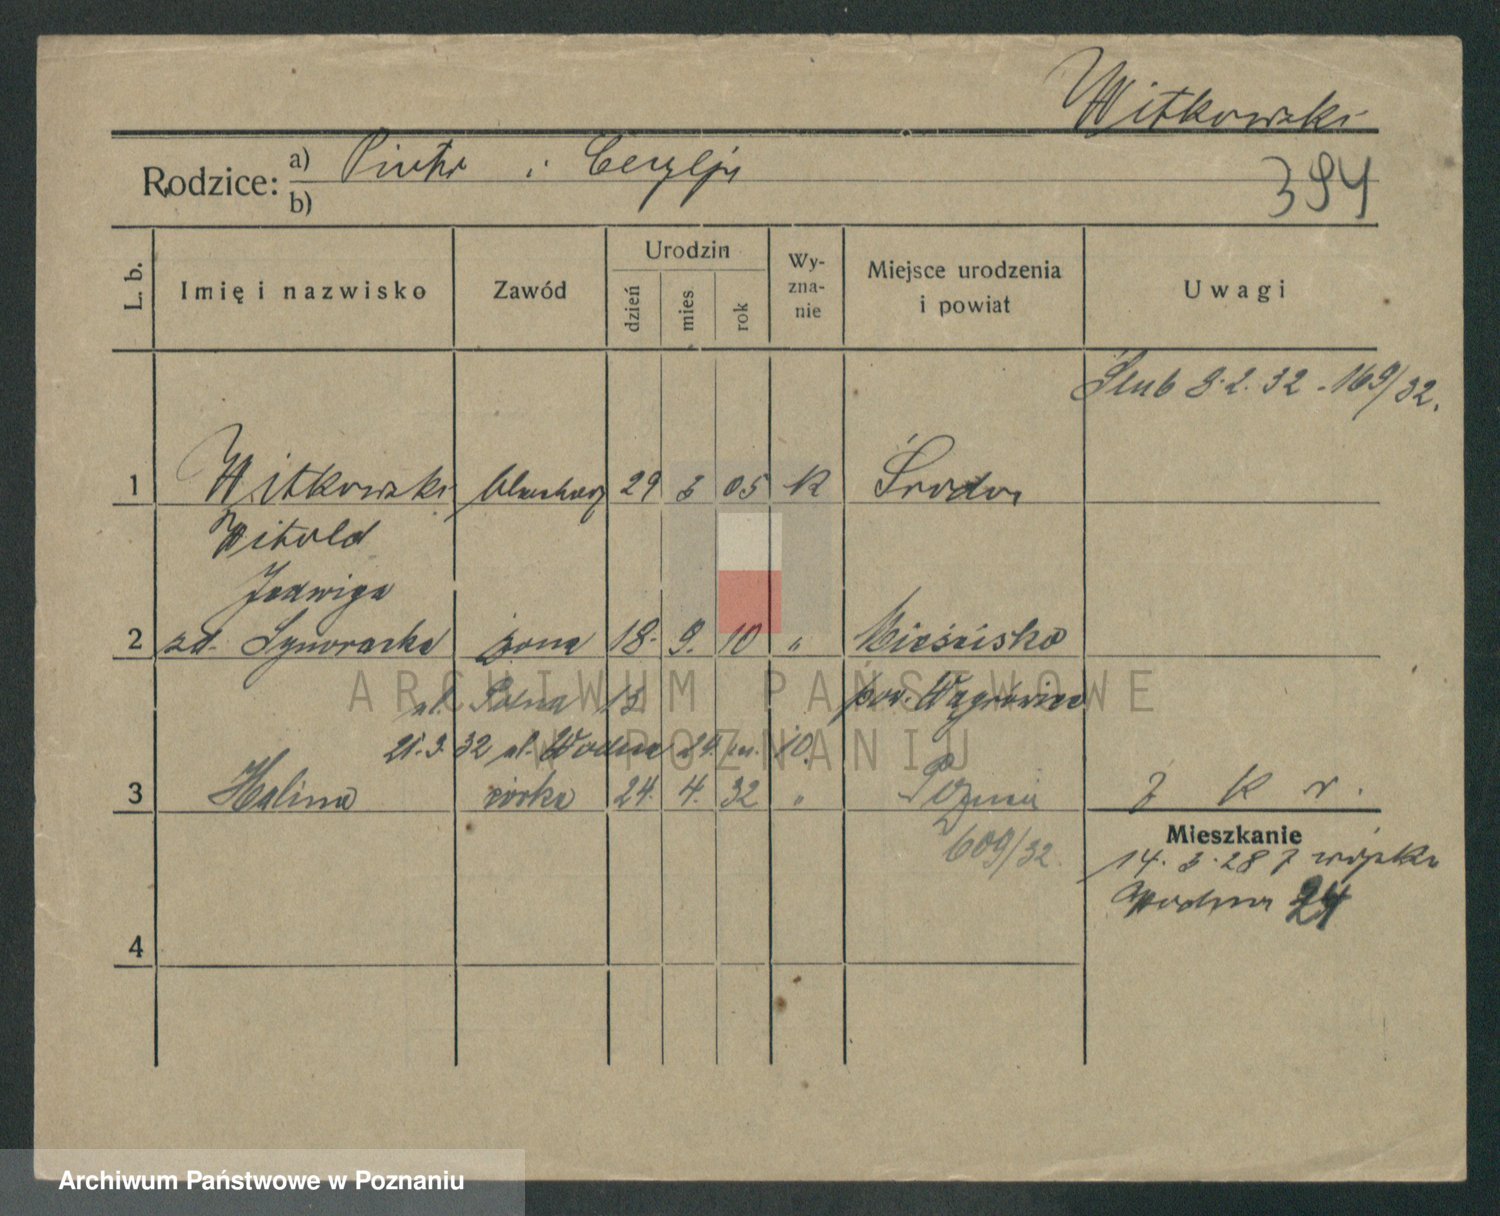 Witkowski
Rodzice: a) Piotr i Cecylja
b)
394
L. b.
Imię i nazwisko
Zawód
Urodzin
dzień mies rok
Wy-
zna-
nie
Miejsce urodzenia
i powiat
Uwagi
Ślub 8.2.32 - 169/32.
1 Witkowski blacharz 29 3 05 K Środa
Witold
Jadwiga
2 zd. żona 18. 9. 10 " Mieścisko
ul. Polna 13 pow. Wągrowiec
21.3.32 ul. Wodna 24 m. 10.
3 Halina córka 24. 4. 32 " Poznań
609/32.
z K r.
Mieszkanie
14.3.28 z wojska
Wodna 24
4
ARCHIWUM PAŃSTWOWE
W POZNANIU
Archiwum Państwowe w Poznaniu